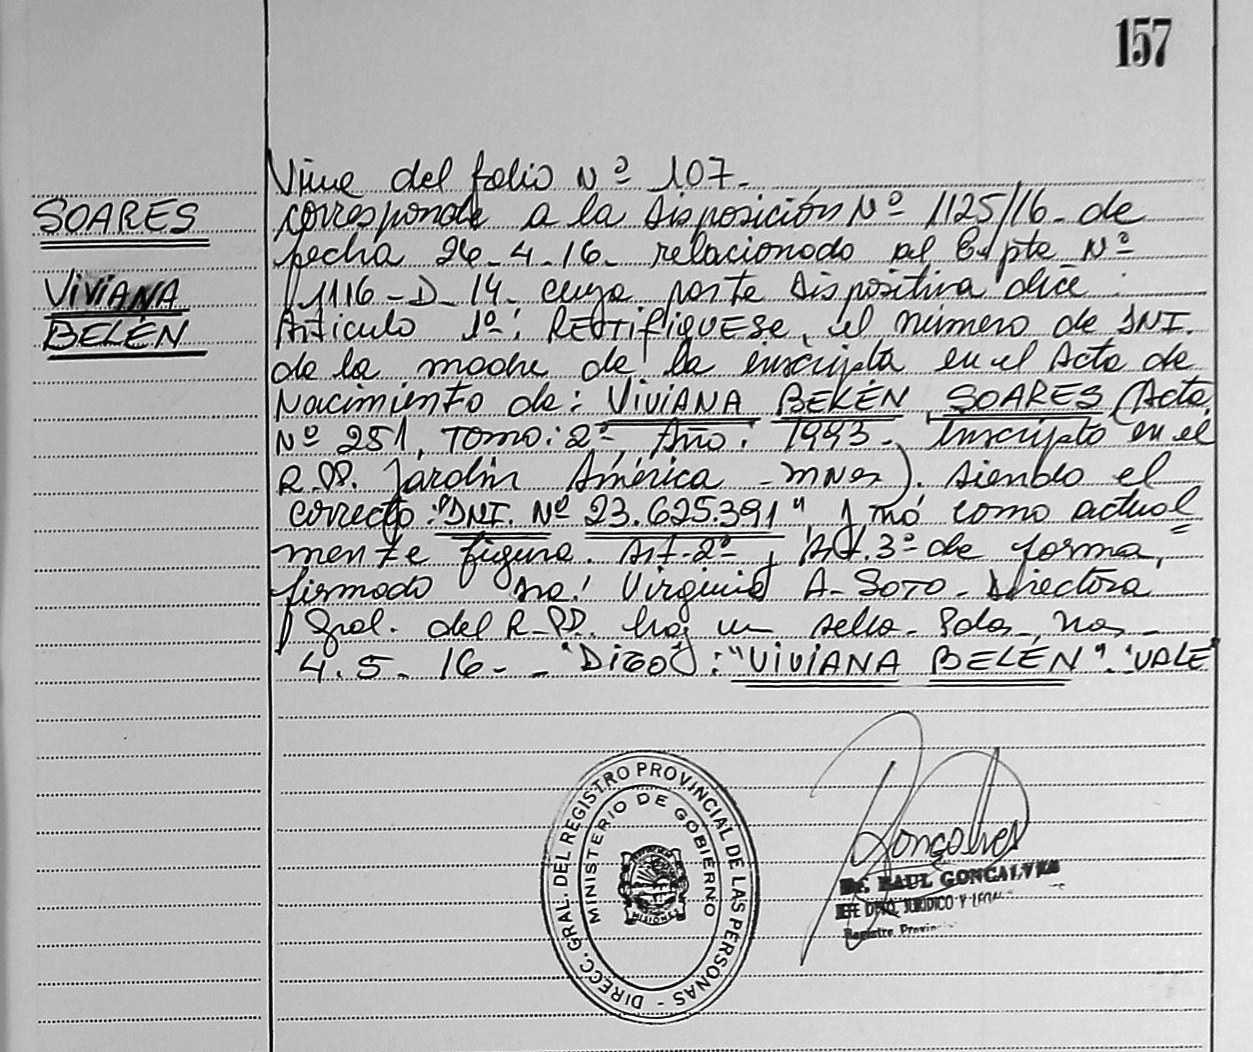 157
SOARES
VIVIANA
BELÉN
Viene del folio Nº 107.-
corresponde a la disposición Nº 1125/16- de
fecha 26-4-16- relacionado al Expte Nº
1116-D-14- cuya parte dispositiva dice
Artículo 1º: RECTIFIQUESE, el número de DNI.
de la madre de la inscripta en el Acta de
Nacimiento de: VIVIANA BEKÉN SOARES (Acta
Nº 251, Tomo: 2º, Año: 1993-, Inscripto en el
R.PP. Jardín América - mnes). siendo el
correcto: "DNI. Nº 23.625.391", y no como actual=
mente figura. Art.2º, Art.3º de forma,
firmado Virginia A-SOTO- Directora
Gral. del R-PP. hay un sello- Pdas, nes-
4.5.16-- "DIGO": "VIVIANA BELÉN". "VALE"
DIRECC. GRAL. DEL REGISTRO PROVINCIAL DE LAS PERSONAS -
MINISTERIO DE GOBIERNO
MISIONES
Gonçalves
RAUL GONCALVES
JEFE DPTO. JURIDICO Y
Registro